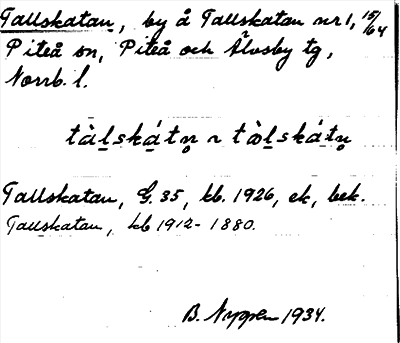 Tallskatan, by å Tallskatan nr 1, 15/64
Piteå sn, Piteå och Älvsby tg,
Norrb. l.
tàl̲skátn̥ ~ tòl̲skátn̥
Tallskatan, G. 35, kb. 1926, ek, bek.
Tallskatan, kb 1912-1880.
B. Nygren 1934.